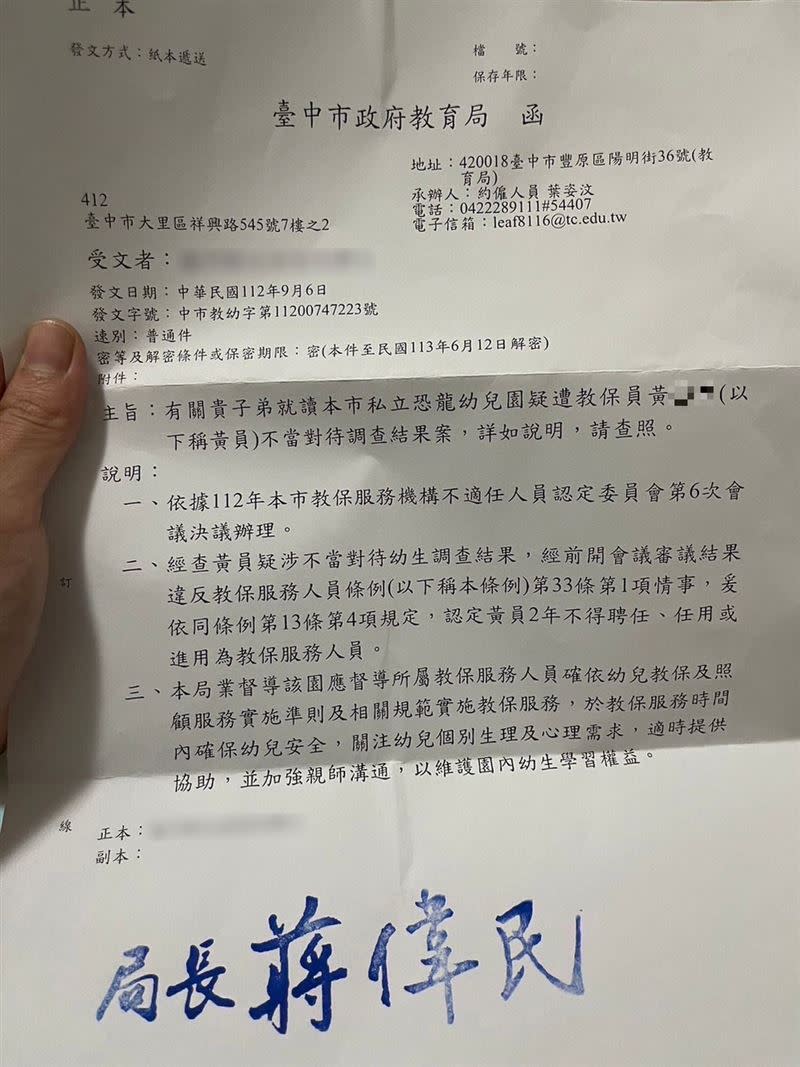 正本
發文方式：紙本遞送
檔　號：
保存年限：
臺中市政府教育局　函
地址：420018臺中市豐原區陽明街36號(教
育局)
承辦人：約僱人員 葉姿汶
電話：0422289111#54407
電子信箱：leaf8116@tc.edu.tw
412
臺中市大里區祥興路545號7樓之2
受文者：
發文日期：中華民國112年9月6日
發文字號：中市教幼字第11200747223號
速別：普通件
密等及解密條件或保密期限：密(本件至民國113年6月12日解密)
附件：
主旨：有關貴子弟就讀本市私立恐龍幼兒園疑遭教保員黃(以
下稱黃員)不當對待調查結果案，詳如說明，請查照。
說明：
一、依據112年本市教保服務機構不適任人員認定委員會第6次會
議決議辦理。
二、經查黃員疑涉不當對待幼生調查結果，經前開會議審議結果
違反教保服務人員條例(以下稱本條例)第33條第1項情事，爰
依同條例第13條第4項規定，認定黃員2年不得聘任、任用或
進用為教保服務人員。
三、本局業督導該園應督導所屬教保服務人員確依幼兒教保及照
顧服務實施準則及相關規範實施教保服務，於教保服務時間
內確保幼兒安全，關注幼兒個別生理及心理需求，適時提供
協助，並加強親師溝通，以維護園內幼生學習權益。
訂
線
正本：
副本：
局長蔣偉民